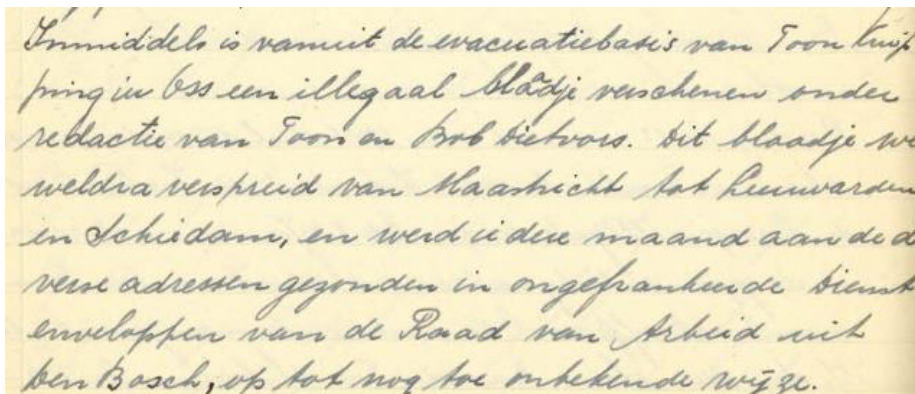 Inmiddels is vanuit de evacuatiebasis van Toon Kuip
ping in Oss een illegaal blaadje verschenen onder
redactie van Toon en Bob Dietvors. Dit blaadje we
weldra verspreid van Maastricht tot Leeuwarden
en Schiedam, en werd iedere maand aan de d
verse adressen gezonden in ongefrankeerde Dienst
enveloppen van de Raad van Arbeid uit
Den Bosch, op tot nog toe onbekende wijze.